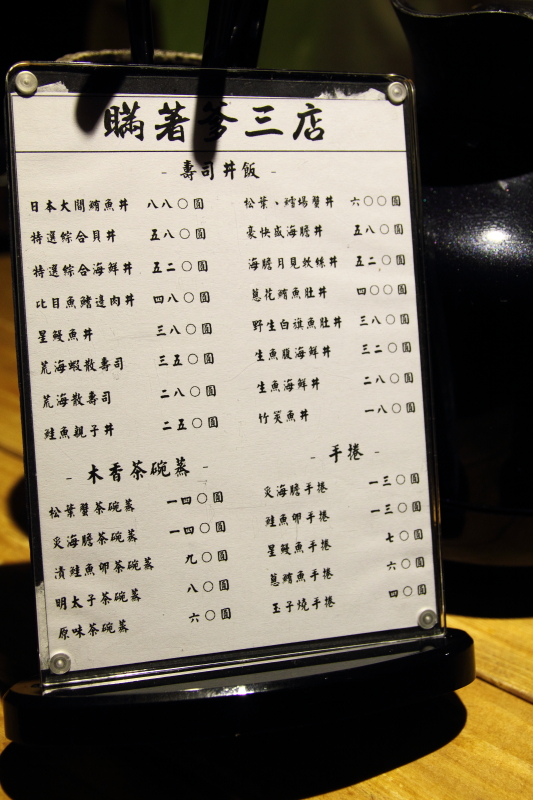 瞞著爹三店
- 壽司丼飯 -
日本大間鮪魚丼 八八〇圓
特選綜合貝丼 五八〇圓
特選綜合海鮮丼 五二〇圓
比目魚鰭邊肉丼 四八〇圓
星鰻魚丼 三八〇圓
荒海蝦散壽司 三五〇圓
荒海散壽司 二八〇圓
鮭魚親子丼 二五〇圓
松葉、鱈場蟹丼 六〇〇圓
豪快盛海膽丼 五八〇圓
海膽月見絞絲丼 五二〇圓
蔥花鮪魚肚丼 四〇〇圓
野生白旗魚肚丼 三八〇圓
生魚腹海鮮丼 三二〇圓
生魚海鮮丼 二八〇圓
竹筴魚丼 一八〇圓
- 木香茶碗蒸 -
松葉蟹茶碗蒸 一四〇圓
炙海膽茶碗蒸 一四〇圓
漬鮭魚卵茶碗蒸 九〇圓
明太子茶碗蒸 八〇圓
原味茶碗蒸 六〇圓
- 手捲 -
炙海膽手捲 一三〇圓
鮭魚卵手捲 一三〇圓
星鰻魚手捲 七〇圓
蔥鮪魚手捲 六〇圓
玉子燒手捲 四〇圓